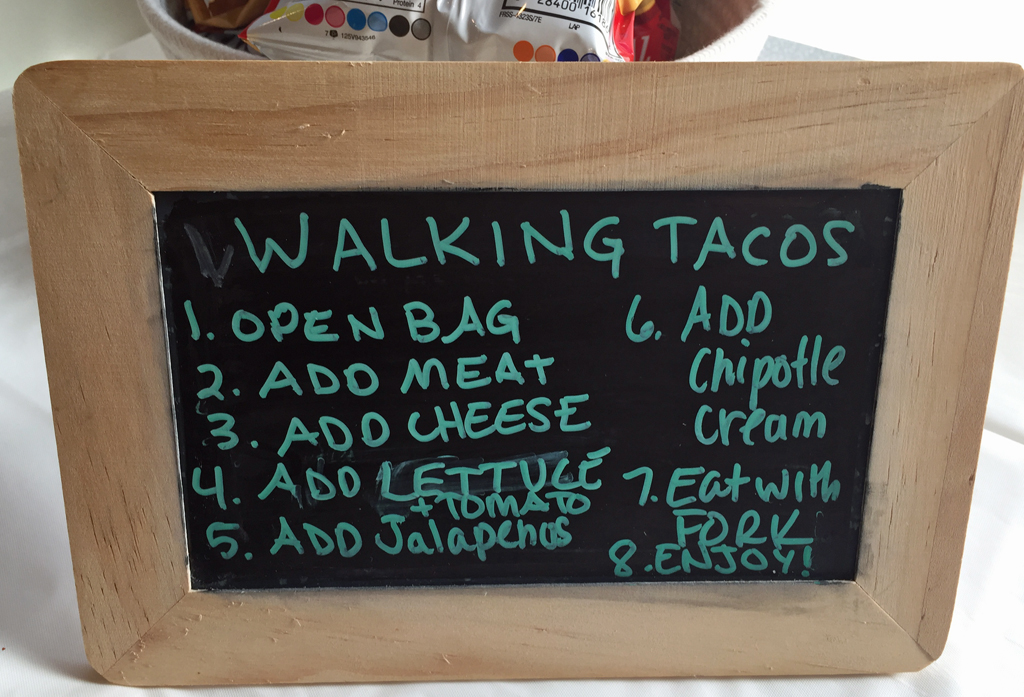 Protein 4
28400
FRSS-1323S/7E
LAP
WALKING TACOS
1. OPEN BAG
2. ADD MEAT
3. ADD CHEESE
4. ADD LETTUCE
+ TOMATO
5. ADD Jalapenos
6. ADD
Chipotle
Cream
7. Eat with
FORK
8. ENJOY!